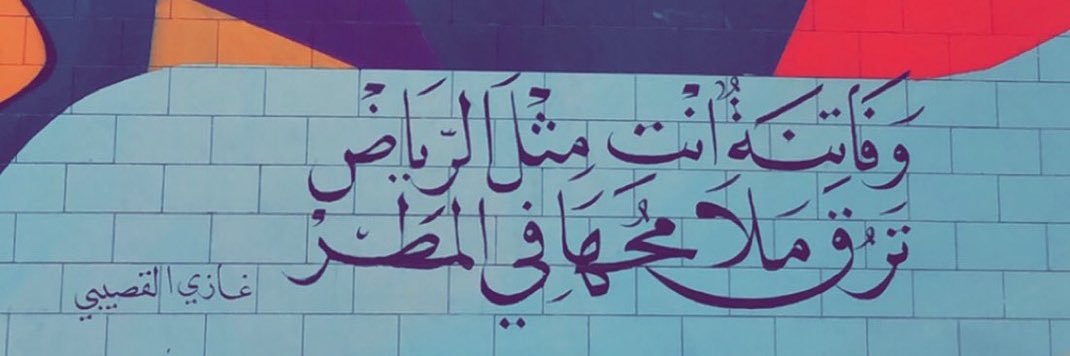 وَفَاتِنَةٌ أنْتِ مِثْلَ الرِّيَاضْ
تَرِقُّ مَلَامِحُهَا فِي المَطَرْ
غازي القصيبي